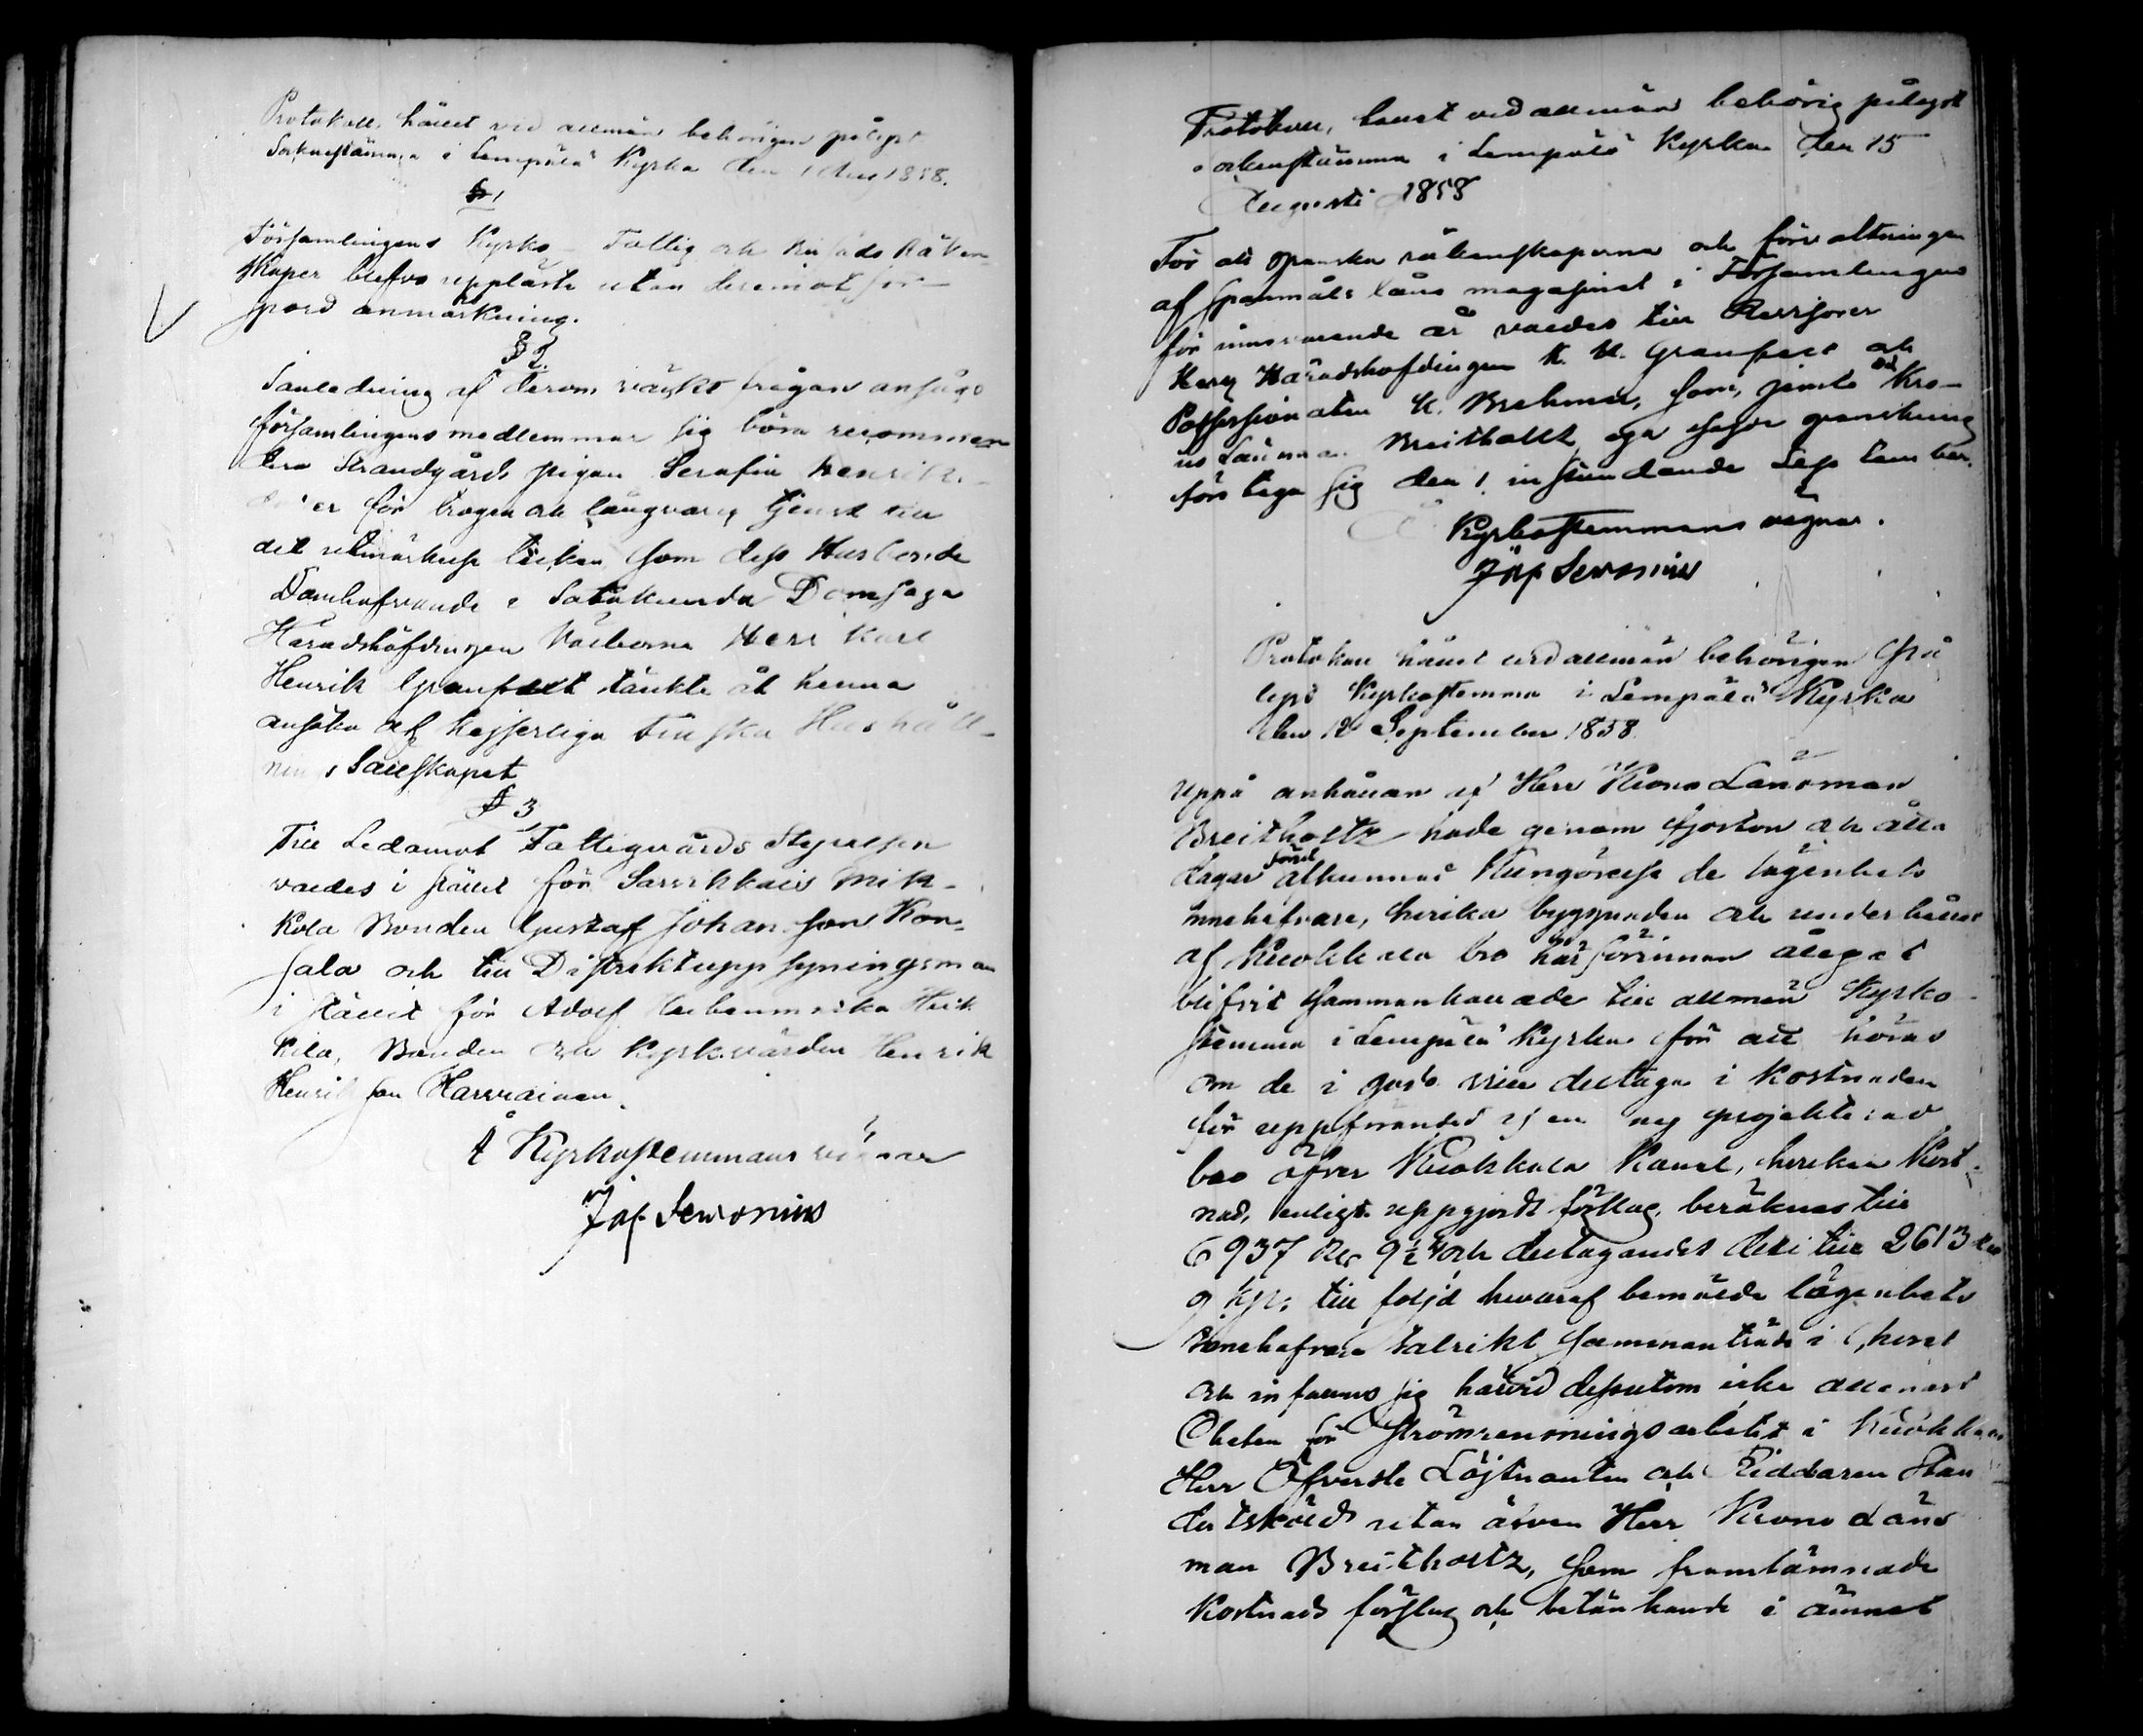 Protokoll, hållet vid allmän behörigen pålyst
Sockenstämma i Lempälä Kyrka den 1 Aug 1858.
§ 1
Församlingens Kyrko- Fattig och Räken-
skaper blefvo uppläste utan deremot för-
spord anmärkning.
§ 2.
I anledning af derom väckt frågan ansågo
församlingens medlemmar sig böra recommen
dera Strandgårds pigan Serafia Henriks-
doter för trogen och långvarig tjenst till
det utmärkelse tecken som dess Husbonde
Domhafvande i Satakunda Domsaga
Häradshöfdingen Välborne Herr Karl
Henrik Granfelt täckte åt henne
ansöka af Kejserliga Finska Hushåll-
nings Sällskapet
§ 3
Till Ledamot Fattigvårds Styrelsen
valdes i stället för Savikkais Mik-
kola Bonden Gustaf Johansson Kon-
sala och till Distriktuppsyningsman
i stället för Adolf Heik
kila, Bonden och Kyrkvärden Henrik
Henriksson Harvainen.
Å Kyrkostemmans vägnar
Jos Servonius
Protokoll, hållet vid allmän behörig pålyst
sockenstämma i Lempälä Kyrka den 15
Augusti 1858
För att granska räkenskaperna och förvaltningen
af Spanmåls låne magasinet i Församlingen
för innevarande år valdes till Revisorer
Herr Häradshöfdingen K. H. Granfelt och
Possessionaten K. Brehmer, som, jemte Kro-
no Länsman Breitholtz ega efesor granskning
företaga sig den 1 instundande September.
Å Kyrkostemmans vägnar.
Jos Servonius
Protokoll hållet vid allmän behörigen på
lyst Kyrkostemma i Lempälä Kyrka
den 12 September 1858.
Uppå anhållan af Herr Krono Länsman
Breitholtz hade genom fjorton och åtta
dagar förut afkunnad Kungörelse de lägenhets
innehafvare, hvilka byggnaden och underhållet
af Kuokkala bro här förinnan ålegat
blifvit sammankallade till allmän Kyrko-
stemma i Lempälä Kyrka för att höras
om de i godo vilja deltaga i kostnaden
för uppförandet af en ny projekterad
bro öfver Kuokkala Kanal, hvilken kost-
nad, enligt uppgjordt förslag, beräknas till
6937 Rub 9½ K och deltagandet deri till 2613 Rub
9 Kp; till följd hvaraf bemälde lägenhets
innehafvare talrikt sammanträdt i Coheret
och infunno sig härvid dessutom icke allenast
Chefen för Strömrensningsarbetet i Kuokkala
Herr Öfverste Löjtnanten och Riddaren Stan
dertskjöld utan äfven Herr Krono Läns
man Breitholtz, som framlämnade
Kostnads förslag och betänkande i ämnet